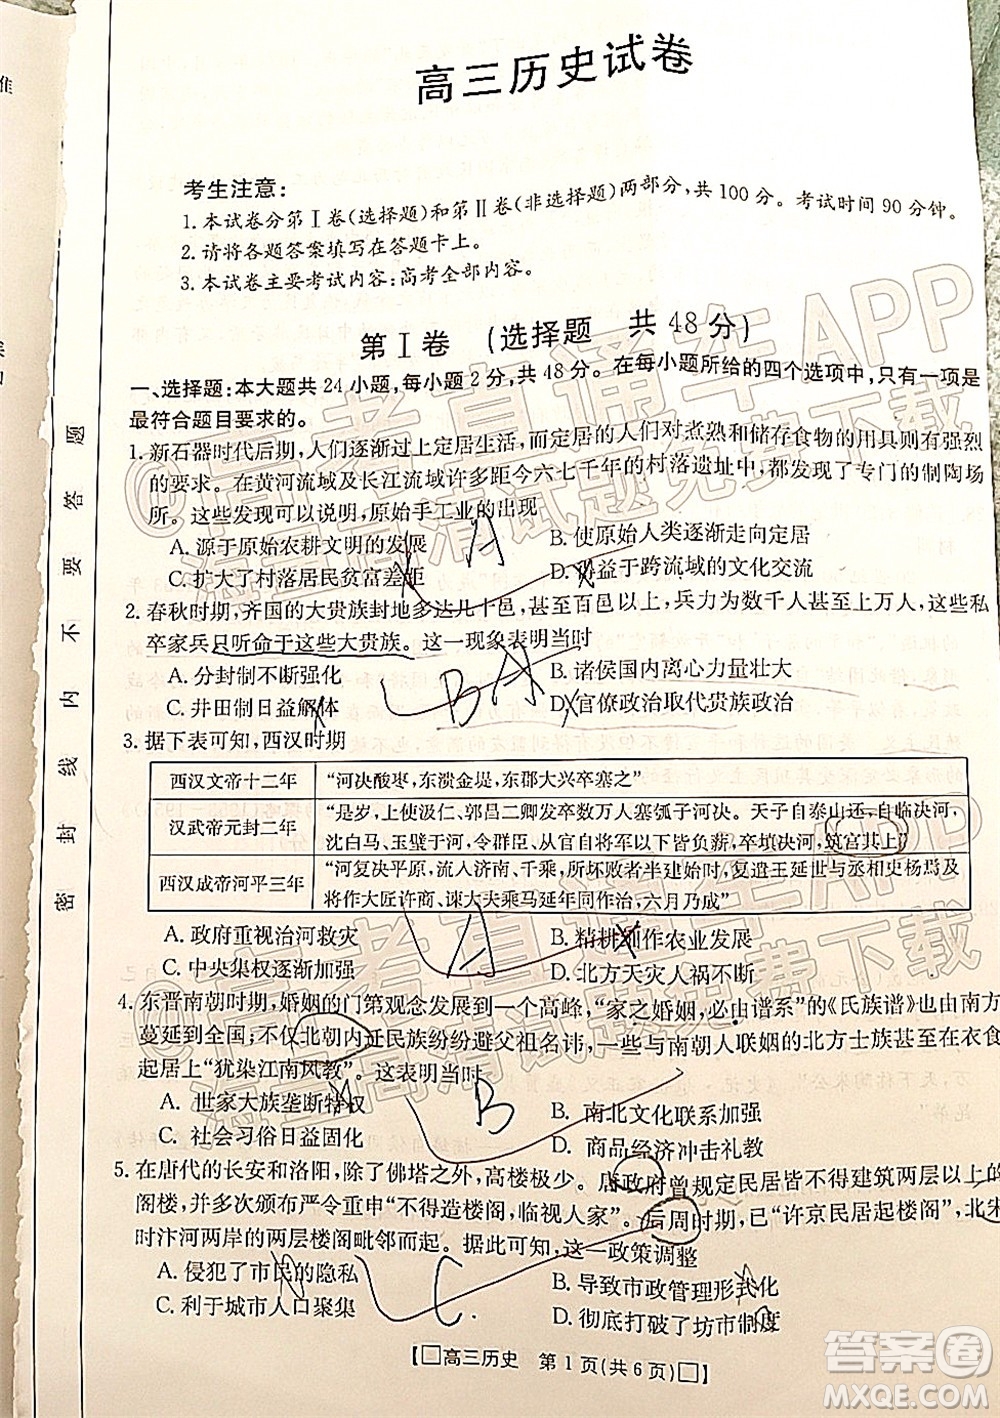 准
高三历史试卷
考生注意:
1.本试卷分第Ⅰ卷(选择题)和第Ⅱ卷(非选择题)两部分,共100分。考试时间90分钟。
2.请将各题答案填写在答题卡上。
3.本试卷主要考试内容:高考全部内容。
第Ⅰ卷 (选择题 共48分)
一、选择题:本大题共24小题,每小题2分,共48分。在每小题所给的四个选项中,只有一项是
最符合题目要求的。
1. 新石器时代后期,人们逐渐过上定居生活,而定居的人们对煮熟和储存食物的用具则有强烈
的要求。在黄河流域及长江流域许多距今六七千年的村落遗址中,都发现了专门的制陶场
所。这些发现可以说明,原始手工业的出现
A. 源于原始农耕文明的发展
B. 使原始人类逐渐走向定居
C. 扩大了村落居民贫富差距
D. 得益于跨流域的文化交流
A
2. 春秋时期,齐国的大贵族封地多有几十邑,甚至百邑以上,兵力为数千人甚至上万人,这些私
卒家兵只听命于这些大贵族。这一现象表明当时
A. 分封制不断强化
B. 诸侯国内离心力量壮大
C. 井田制日益解体
D. 官僚政治取代贵族政治
BA
3. 据下表可知,西汉时期
西汉文帝十二年 “河决酸枣,东溃金堤,东郡大兴卒塞之”
汉武帝元封二年 “是岁,上使汲仁、郭昌二卿发卒数万人塞瓠子河决。天子自泰山还,自临决河,
沈白马、玉璧于河,令群臣、从官自将军以下皆负薪,卒填决河,筑宫其上”
西汉成帝河平三年 “河复决平原,流入济南、千乘,所坏败者半建始时,复遣王延世与丞相史杨焉及
将作大匠许商、谏大夫乘马延年同作治,六月乃成”
A. 政府重视治河救灾
B. 精耕细作农业发展
C. 中央集权进一步加强
D. 北方天灾人祸不断
A
4. 东晋南朝时期,婚姻的门第观念发展到一个高峰,“家之婚姻,必由谱系”的《氏族谱》也由南方
蔓延到全国;不仅北朝内迁民族纷纷避父祖名讳,一些与南朝人联姻的北方士族也在衣食
起居上“犹染江南风教”。这表明当时
A. 世家大族垄断特权
B. 南北文化联系加强
C. 社会习俗日益固化
D. 商品经济冲击礼教
B
5. 在唐代的长安和洛阳,除了佛塔之外,高楼极少。唐政府曾规定民居皆不得建筑两层以上的
阁楼,并多次颁布严令重申“不得造楼阁,临视人家”。后周时期,已“许京民居起楼阁”,北宋
时汴河两岸的两层楼阁毗邻而起。据此可知,这一政策调整
A. 侵犯了市民的隐私
B. 导致市政管理形式化
C. 利于城市人口聚集
D. 彻底打破了坊市制度
C
【□高三历史 第1页(共6页)□】
密 封 线 内 不 要 答 题
@高考直通车APP
海量高清试题免费下载
@高考直通车APP
海量高清试题免费下载
答案圈
MXQE.COM